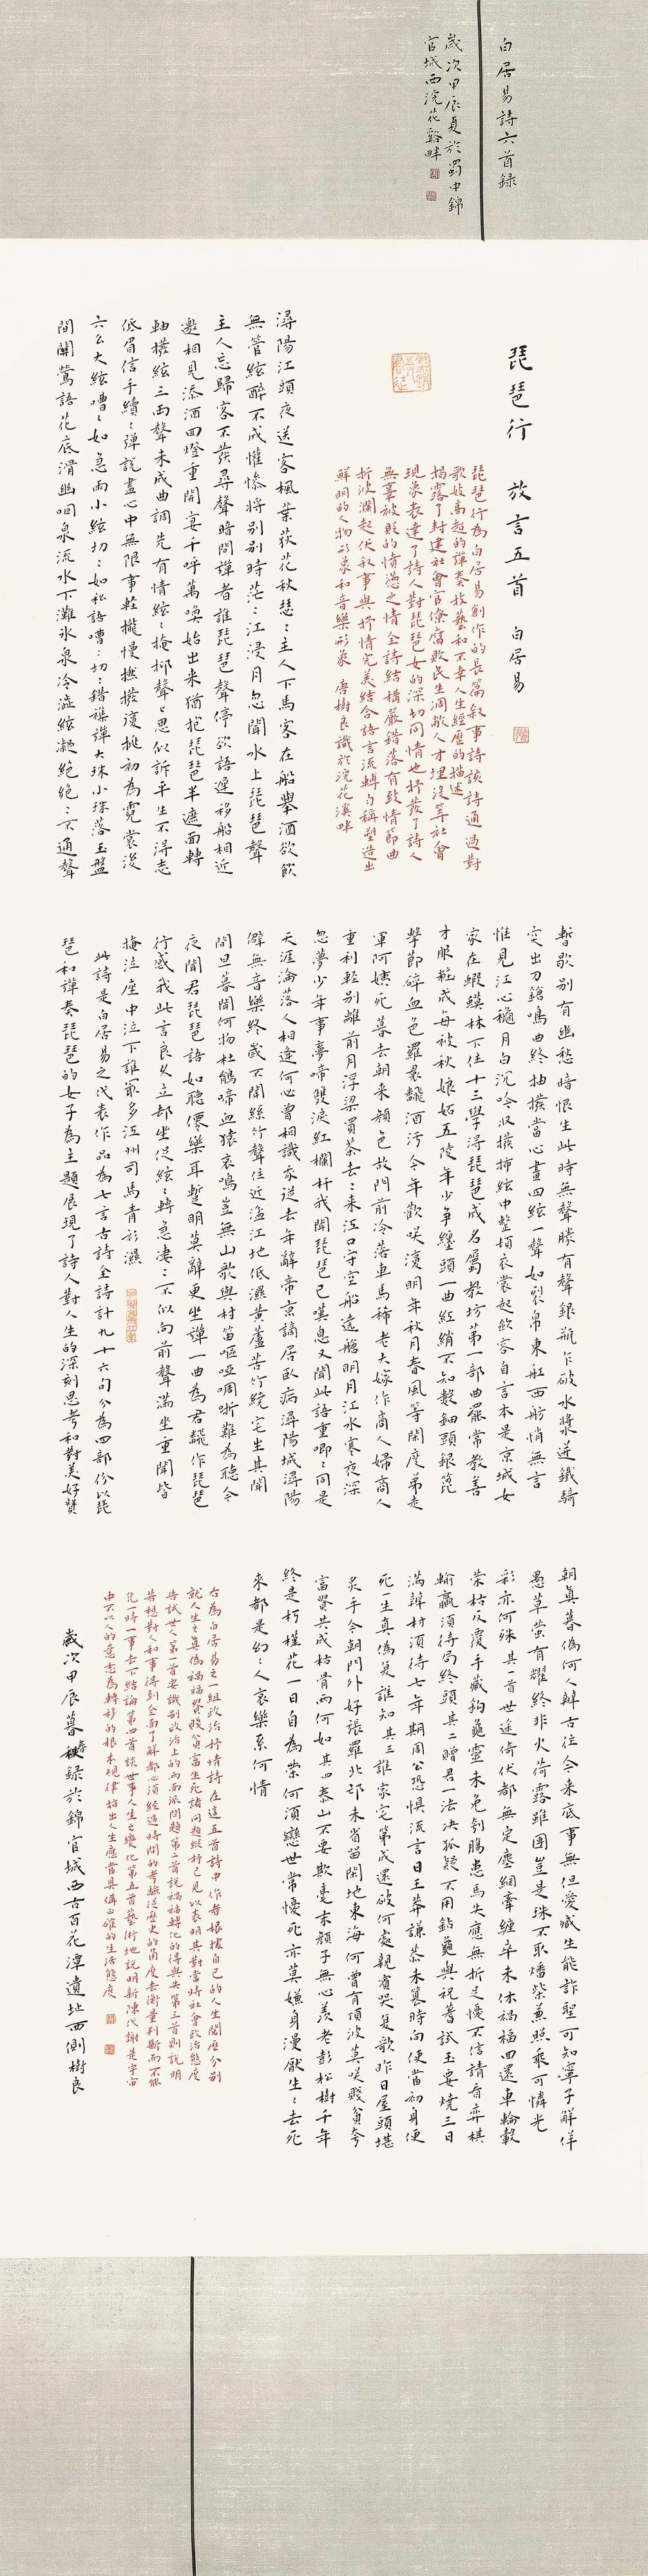 白居易詩六首録
歲次甲辰夏於蜀中錦
官城西浣花谿畔
琵琶行 放言五首 白居易
琵琶行為白居易創作的長篇叙事詩該詩通過對
歌妓高超的彈奏技藝和不幸人生經歷的描述
揭露了封建社會官僚腐敗民生凋敝人才埋没等社會
現象表達了詩人對琵琶女的深切同情也抒發了詩人
無辜被貶的憤懣之情全詩結構嚴錯落有致情節曲
折波瀾起伏叙事與抒情完美結合語言流轉勻稱塑造出
鮮明的人物形象和音樂形象 唐樹良識於浣花溪畔
潯陽江頭夜送客楓葉荻花秋瑟〻主人下馬客在船舉酒欲飲
無管絃醉不成懽慘将别别時茫〻江浸月忽聞水上琵琶聲
主人忘歸客不發尋聲暗問彈者誰琵琶聲停欲語遲移船相近
邀相見添酒回燈重開宴千呼萬喚始出来猶抱琵琶半遮面轉
軸撥絃三兩聲未成曲調先有情絃〻掩抑聲〻思似訴平生不得志
低眉信手續〻彈説盡心中無限事輕攏慢撚撥復挑初為霓裳後
六幺大絃嘈〻如急雨小絃切〻如私語嘈〻切〻錯雜彈大珠小珠落玉盤
間關鶯語花底滑幽咽泉流水下灘氷泉冷澁絃凝絶絶〻不通聲
暫歇别有幽愁暗恨生此時無聲勝有聲銀瓶乍破水漿迸鐵騎
突出刀鎗鳴曲終抽撥當心畫四絃一聲如裂帛東舡西舫悄無言
惟見江心秋月白沉吟収撥插絃中整頓衣裳起歛容自言本是京城女
家在蝦蟆林下住十三學得琵琶成名屬教坊第一部曲罷常教善
才服粧成每被秋娘妬五陵年少争纏頭一曲紅綃不知數鈿頭銀篦
擊節碎血色羅裙飜酒污今年歡咲復明年秋月春風等閑度弟走
軍阿姨死暮去朝来顔色故門前冷落車馬稀老大嫁作商人婦商人
重利輕别離前月浮梁買茶去〻来江口守空船遶艙明月江水寒夜深
忽夢少年事夢啼雙淚紅欄杆我聞琵琶已嘆息又聞此語重唧〻同是
天涯淪落人相逢何必曾相識我從去年辭帝京謫居臥病潯陽城潯陽
僻無音樂終歲不聞絲竹聲住近湓江地低濕黄蘆苦竹繞宅生其間
間旦暮聞何物杜鵑啼血猿哀鳴豈無山歌與村笛嘔啞啁哳難為聽今
夜聞君琵琶語如聽僊樂耳暫明莫辭更坐彈一曲為君飜作琵琶
行感我此言良久立却坐促絃〻轉急凄〻不似向前聲滿坐重聞皆
掩泣座中泣下誰最多江州司馬青衫濕
此詩是白居易之代表作品為七言古詩全詩計九十六句分為四部份以琵
琶和彈奏琵琶的女子為主題展現了詩人對人生的深刻思考和對美好贊
朝真暮偽何人辨古往今来底事無但愛臧生能詐聖可知寧子解佯
愚草螢有耀終非火荷露雖團豈是珠不取燔柴兼照乘可憐光
彩亦何殊其一首世途倚伏都無定塵網牽纏卒未休禍福回還車輪轂
榮枯反覆手藏鈎龜靈未免刳腸患馬失應無折足憂不信請看弈棋
輸贏須待局終頭其二贈君一法决狐疑不用鉆龜與祝蓍試玉要燒三日
滿辨材須待七年期周公恐懼流言日王莽謙恭未篡時向使當初身便
死一生真偽復誰知其三誰家宅第成還破何處親賓哭復歌昨日屋頭堪
炙手今朝門外好張羅北邙未省留閑地東海何曾有頂波莫咲賤貧夸
富貴共成枯骨兩何如其四泰山不要欺毫末顔子無心羡老彭松樹千年
終是朽槿花一日自為榮何須戀世常憂死亦莫嫌身漫厭生〻去死
来都是幻〻人哀樂系何情
右為白居易之一組政治抒情詩在這五首詩中作者根據自己的人生閱歷分别
就人生之真偽禍福貴賤貧富生死諸問題縱抒己見以表明其對當時社會政治態度
告試世人第一首要識别政治上的兩面派問題第二首説禍福轉化的得與失第三首則説明
若想對人和事得到全面了解都必須經過時間的考驗從歷史的角度去衡量判斷而不能
凭一時一事去下結論第四首談世事人生之變化第五首藝術地説明新陳代謝是宇宙
中不以人的意志為轉移的根本規律指出人生應當具備正確的生活態度
歲次甲辰暮春録於錦官城西古百花潭遺址西側樹良